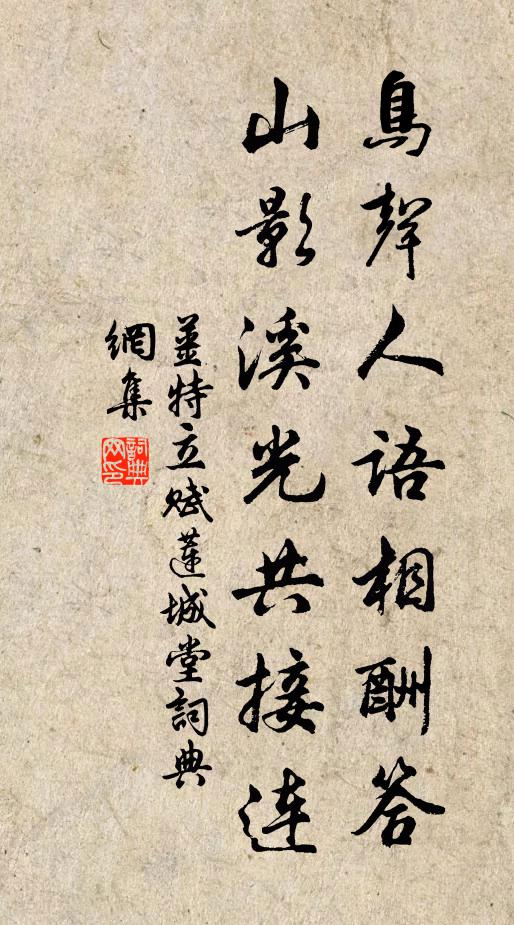 鳥聲人語相酬答
山影溪光共接連
薑特立賦蓮城堂詞典
網集
詞典网印